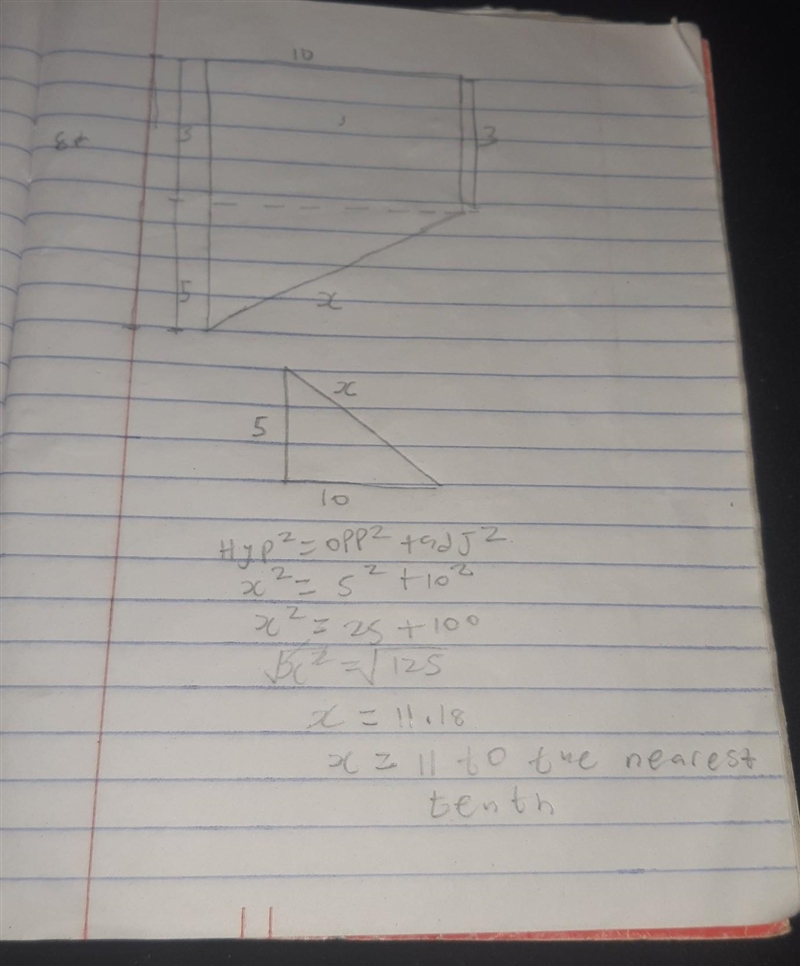 10
3
3
5
x
x
5
10
Hyp² = opp² + adj²
x² = 5² + 10²
x² = 25 + 100
√x² = √125
x = 11.18
x = 11 to the nearest
tenth